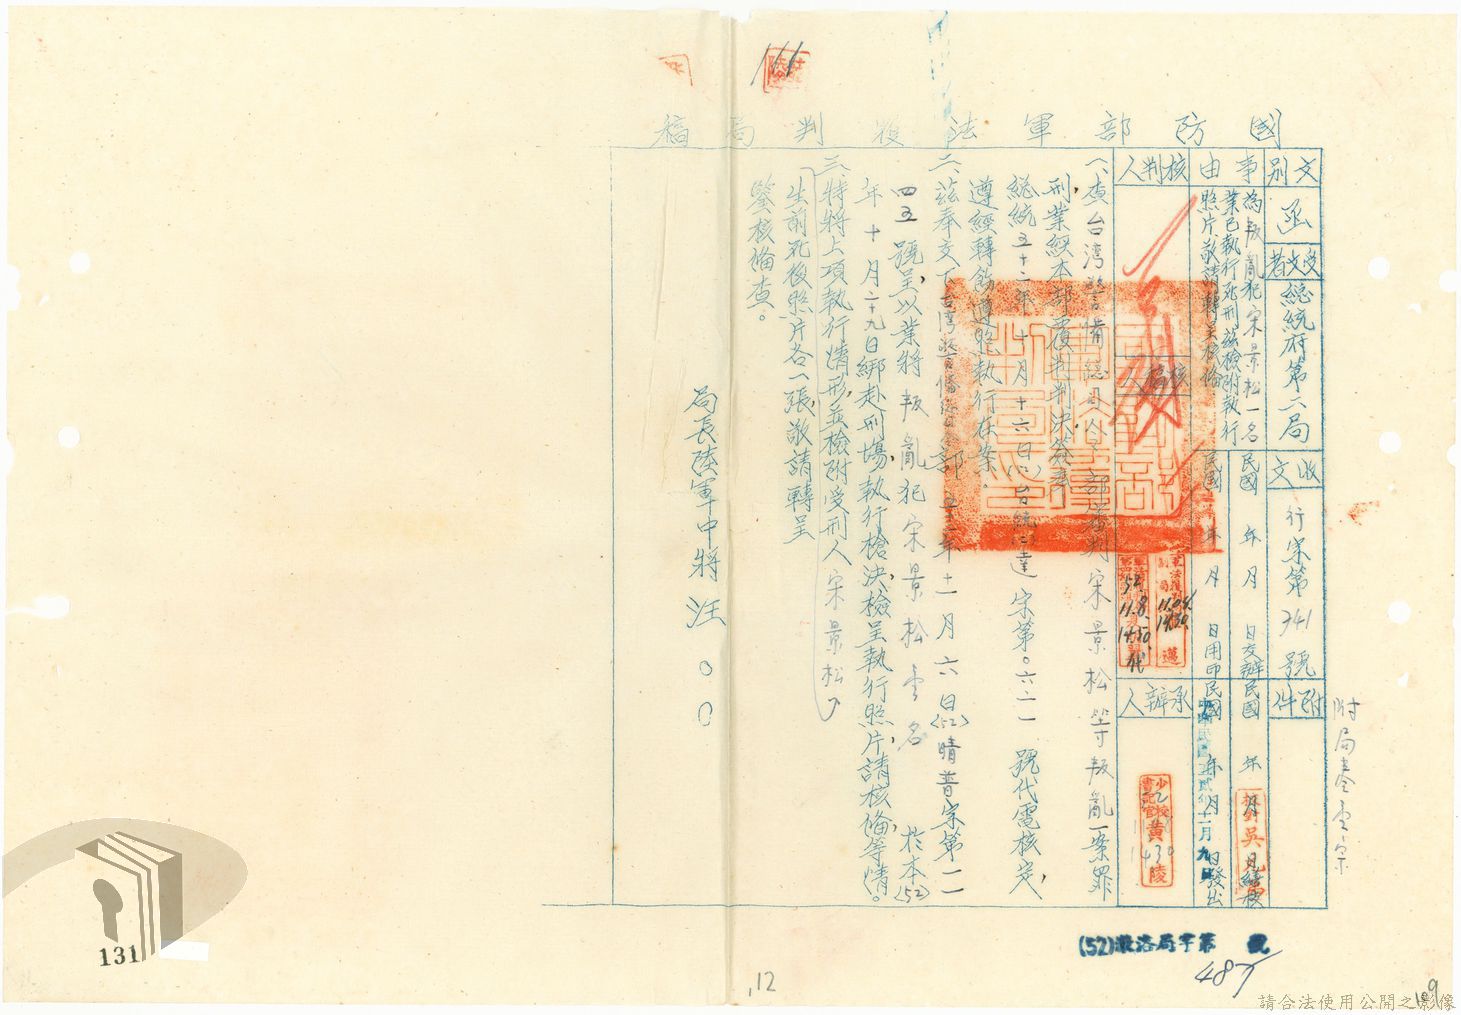 國防部軍法覆判局稿
文別
函
受文者
總統府第二局
收文
行字第341號
附件
附局卷壹宗
事由
為叛亂犯宋景松一名
業已執行死刑茲檢附執行
照片敬請轉呈核備
民國 年 月 日交辦
民國 年 月
民國 年 月 日用印
民國 年 月 日發出
中華民國 年十一月九日
核判人
核稿人
承辦人
52.
11.8.
1450.
代
11.04.
1430.
少校
書記官
黃
陵
1430
一、查台灣警備總司令部審判宋景松等叛亂一案罪
刑,業經本部覆判判決簽奉
總統五十二年十月十六日(52)台統(二)達字第〇六二一號代電核定,
遵經轉飭遵照執行在案。
二、茲奉交下台灣警備總司令部五十二年十一月六日(52)晴普字第一一
四五號呈,以業將叛亂犯宋景松壹名於本(52)
年十月二十九日綁赴刑場,執行槍決,檢呈執行照片,請核備等情。
三、特將上項執行情形,並檢附受刑人宋景松
生前死後照片各一張,敬請轉呈
鑒核備查。
局長陸軍中將汪〇〇
(52)
局字第 號
487
131
12
109
111
請合法使用公開之影像